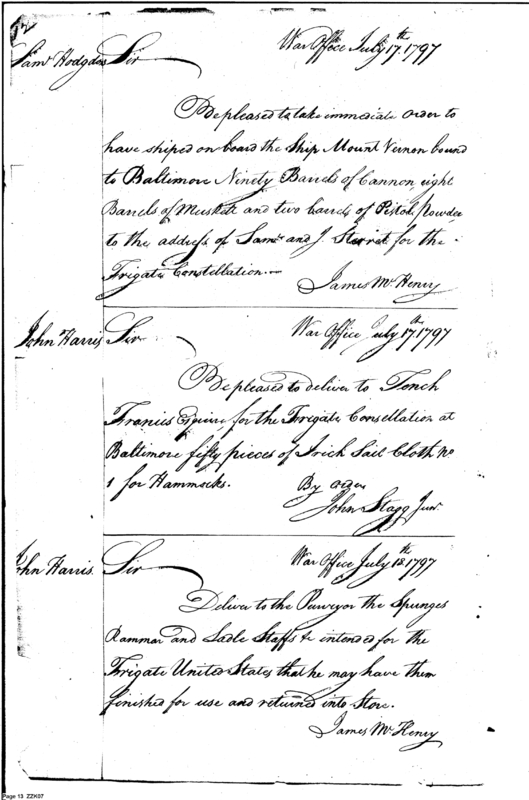 12
War Office July 17th 1797
Saml Hodgdon Sir
Be pleased to take immediate order to
have shiped on board the Ship Mount Vernon bound
to Baltimore Ninety Barrels of Cannon eight
Barrels of Muskett and two barrels of Pistol Powder
to the address of Saml and J. Sterret for the
Frigate Constellation.
James McHenry
War Office July 17th 1797
John Harris Sir
Be pleased to deliver to Tench
Francis Esquire for the Frigate Consellation at
Baltimore fifty pieces of Irish Sail Cloth No
1 for Hammocks.
By order
John Stagg Junr
War Office July 18th 1797
John Harris. Sir
Deliver to the Purveyor the Spunges
Rammar and Ladle Staffs &c intended for the
Frigate United States that he may have them
finished for use and returned into Store.
James McHenry
Page 13 ZZK07